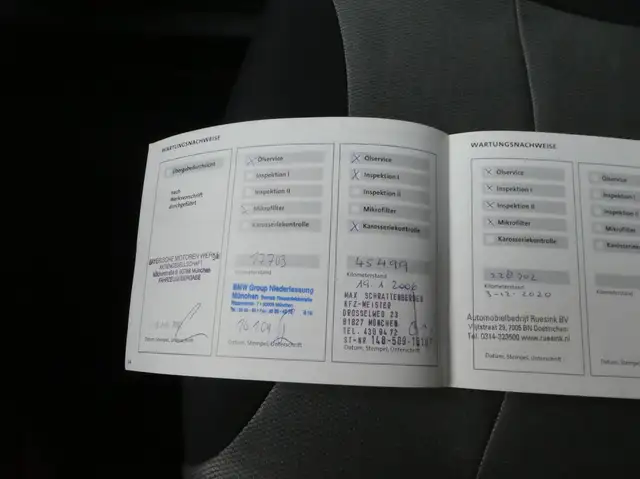 WARTUNGSNACHWEISE
Übergabedurchsicht
nach
Werksvorschrift
durchgeführt
BAYERISCHE MOTOREN WERKE
AKTIENGESELLSCHAFT
Datum, Stempel, Unterschrift
Ölservice
Inspektion I
Inspektion II
Mikrofilter
Karosseriekontrolle
12703
Kilometerstand
BMW Group Niederlassung
München
Datum, Stempel, Unterschrift
Ölservice
Inspektion I
Inspektion II
Mikrofilter
Karosseriekontrolle
45499
Kilometerstand
19.1.2006
MAX SCHRATTENBERGER
KFZ-MEISTER
DROSSELWEG 23
81827 MÜNCHEN
TEL. 439 94 72
ST-NR 148-509-
Datum, Stempel, Unterschrift
WARTUNGSNACHWEISE
Ölservice
Inspektion I
Inspektion II
Mikrofilter
Karosseriekontrolle
Kilometerstand
3-12-2020
Automobielbedrijf Ruesink BV
Vlijtstraat 29, 7005 BN Doetinchem
Tel. 0314-323500 www.ruesink.nl
Datum, Stempel, Unterschrift
Ölservice
Inspektion
Inspektion
Mikrofilter
Karosserie
Kilometerstand
Datum, Stempel,